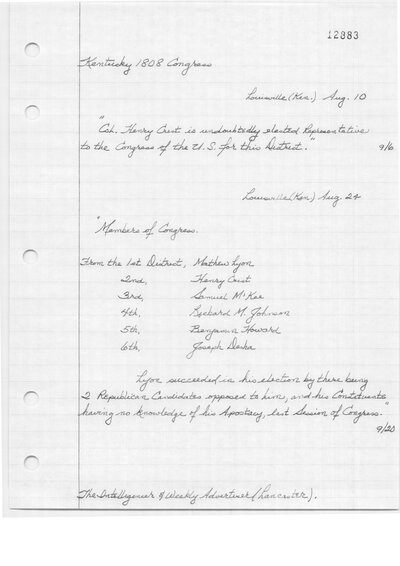 12883
Kentusky 1808 Congress
Louisville (Ken.) Aug. 10
"Col. Henry Crist is undoubtedly elected Representative
to the Congress of the U.S. for this District." 9/6
Louisville (Ken) Aug. 24
"Members of Congress.
From the 1st District, Mathew Lyon
2nd, Henry Crist
3rd, Samuel McKee
4th, Richard M. Johnson
5th, Benjamin Howard
6th, Joseph Desha
Lyon succeeded in his election by there being
2 Republican Candidates opposed to him, and his Constituents
having no knowledge of his Apostacy, last Session of Congress."
9/20
The Intelligencer & Weekly Advertiser (Lancaster).